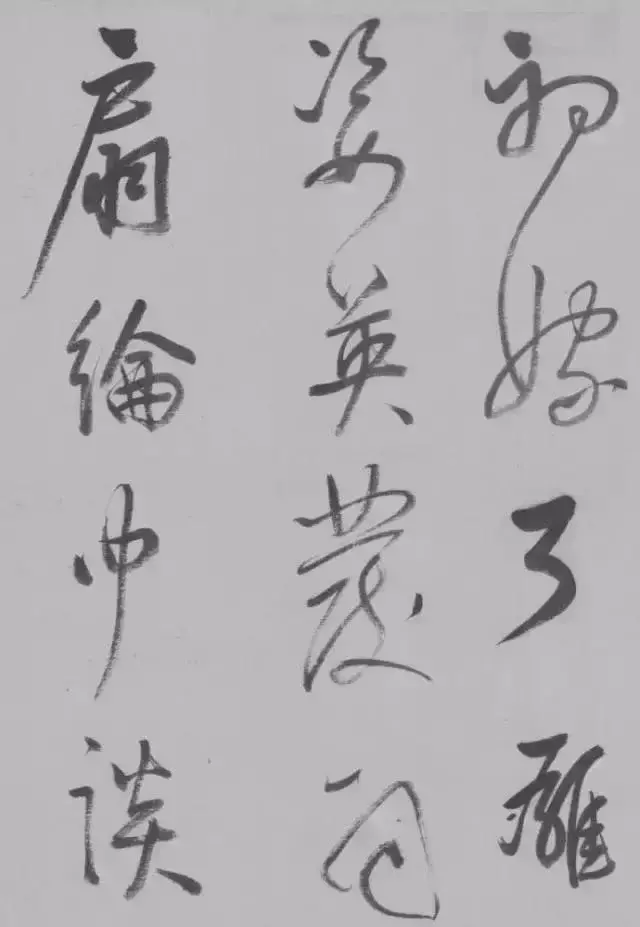 初嫁了雄
姿英發羽
扇綸巾談